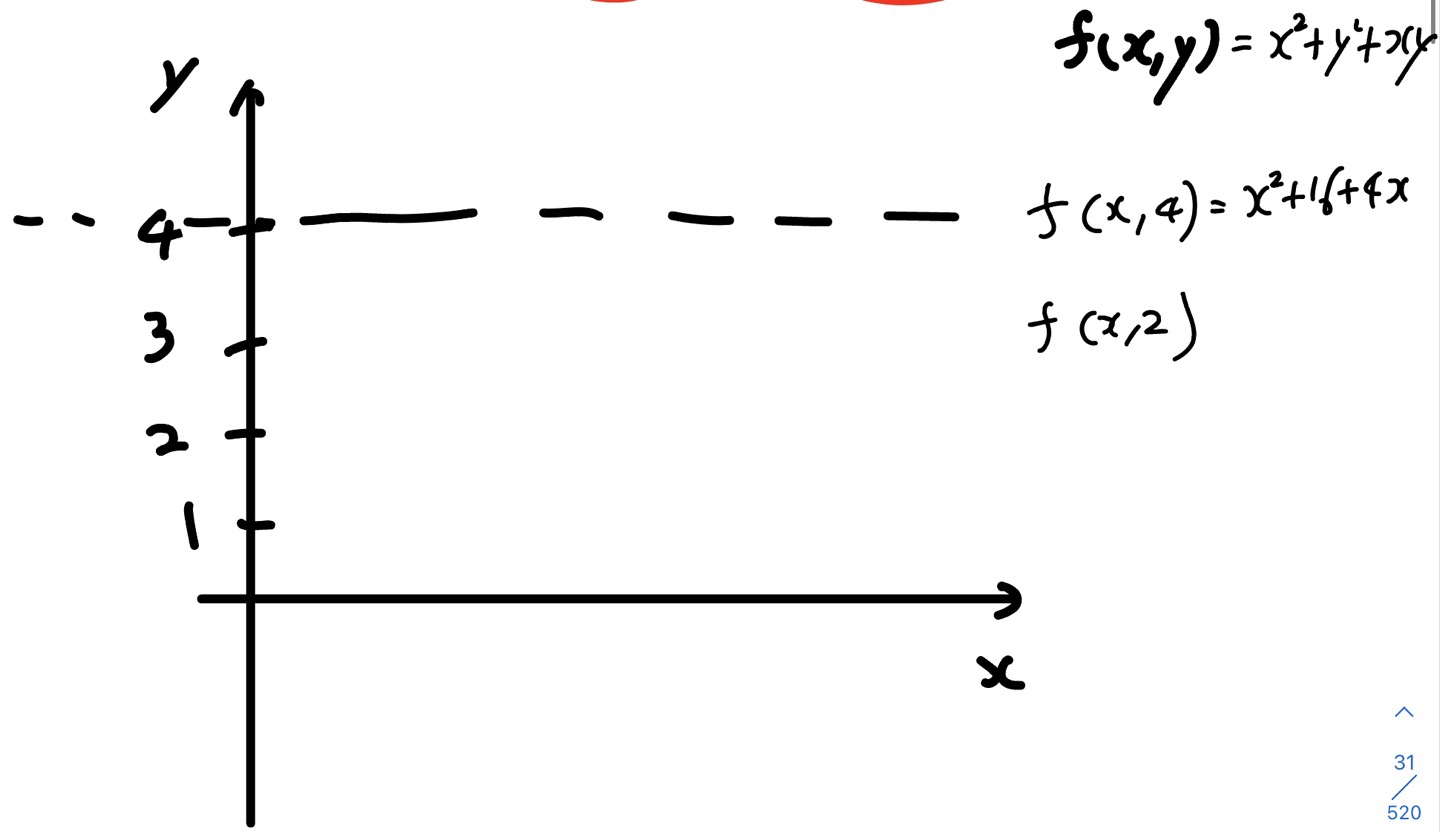 f(x,y) = x²+y²+xy
y
4
f(x,4) = x²+16+4x
3
f(x,2)
2
1
x
31
520